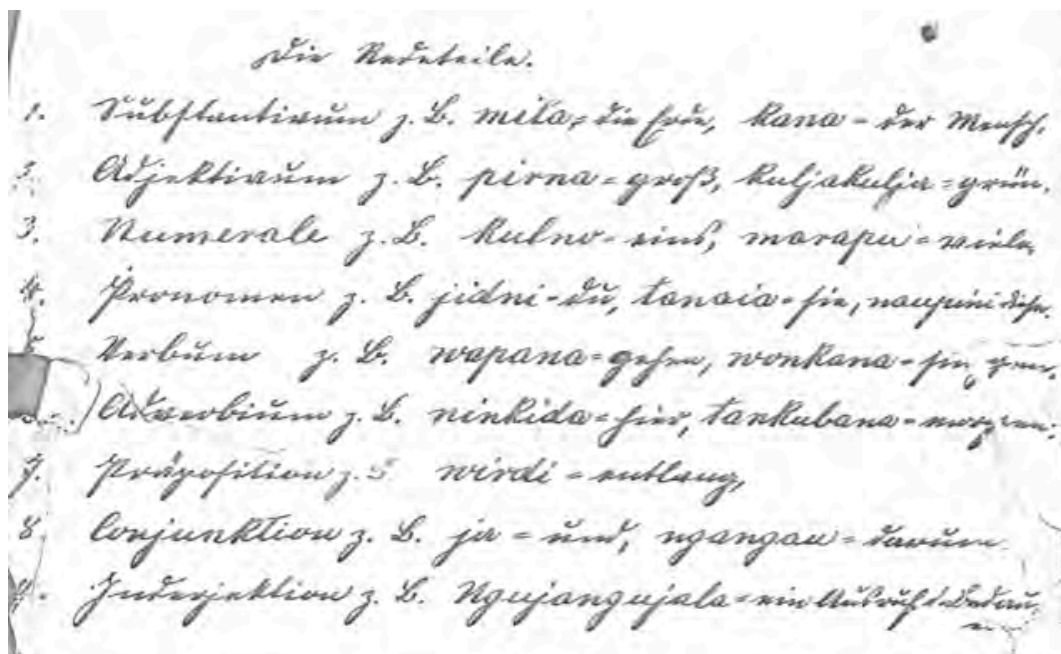 Die Redeteile.
1. Substantivum z. B. mita = die Erde, kana = der Mensch.
2. Adjektivum z. B. pirna = groß, kuljakulja = grün.
3. Numerale z. B. kulno = eins, marapu = viele
4. Pronomen z. B. jidni = du, tanaia = sie, naupini diese.
5. Verbum z. B. wapana = gehen, wonkana = singen.
6. Adverbium z. B. ninkida = hier, tankubana = morgen.
7. Präposition z. B. wirdi = entlang,
8. Conjunktion z. B. ja = und, ngangau = darum
9. Inderjektion z. B. Ngujangujala = ein Ausruf d. Bedau-